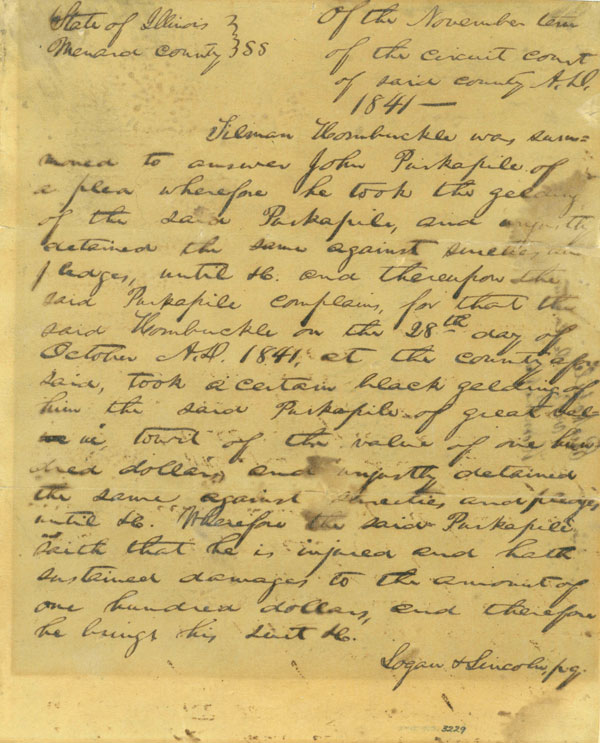 State of Illinois }
Menard County } SS
Of the November term
of the circuit court
of said county A.D.
1841 —
Tilman Hornbuckle was sum=
moned to answer John Purkapile of
a plea wherefore he took the gelding
of the said Purkapile, and unjustly
detained the same against sureties and
pledges, until &c. and thereupon the
said Purkapile complains, for that the
said Hornbuckle on the 28th day of
October A.D. 1841, at the county afore
said, took a certain black gelding of
him the said Purkapile of great val
ue, towit of the value of one hun
dred dollars, and unjustly detained
the same against sureties and pledges
until &c. Wherefore the said Purkapile
saith that he is injured and hath
sustained damages to the amount of
one hundred dollars, and therefore
he brings his suit &c.
Logan & Lincoln, p.q.
3229